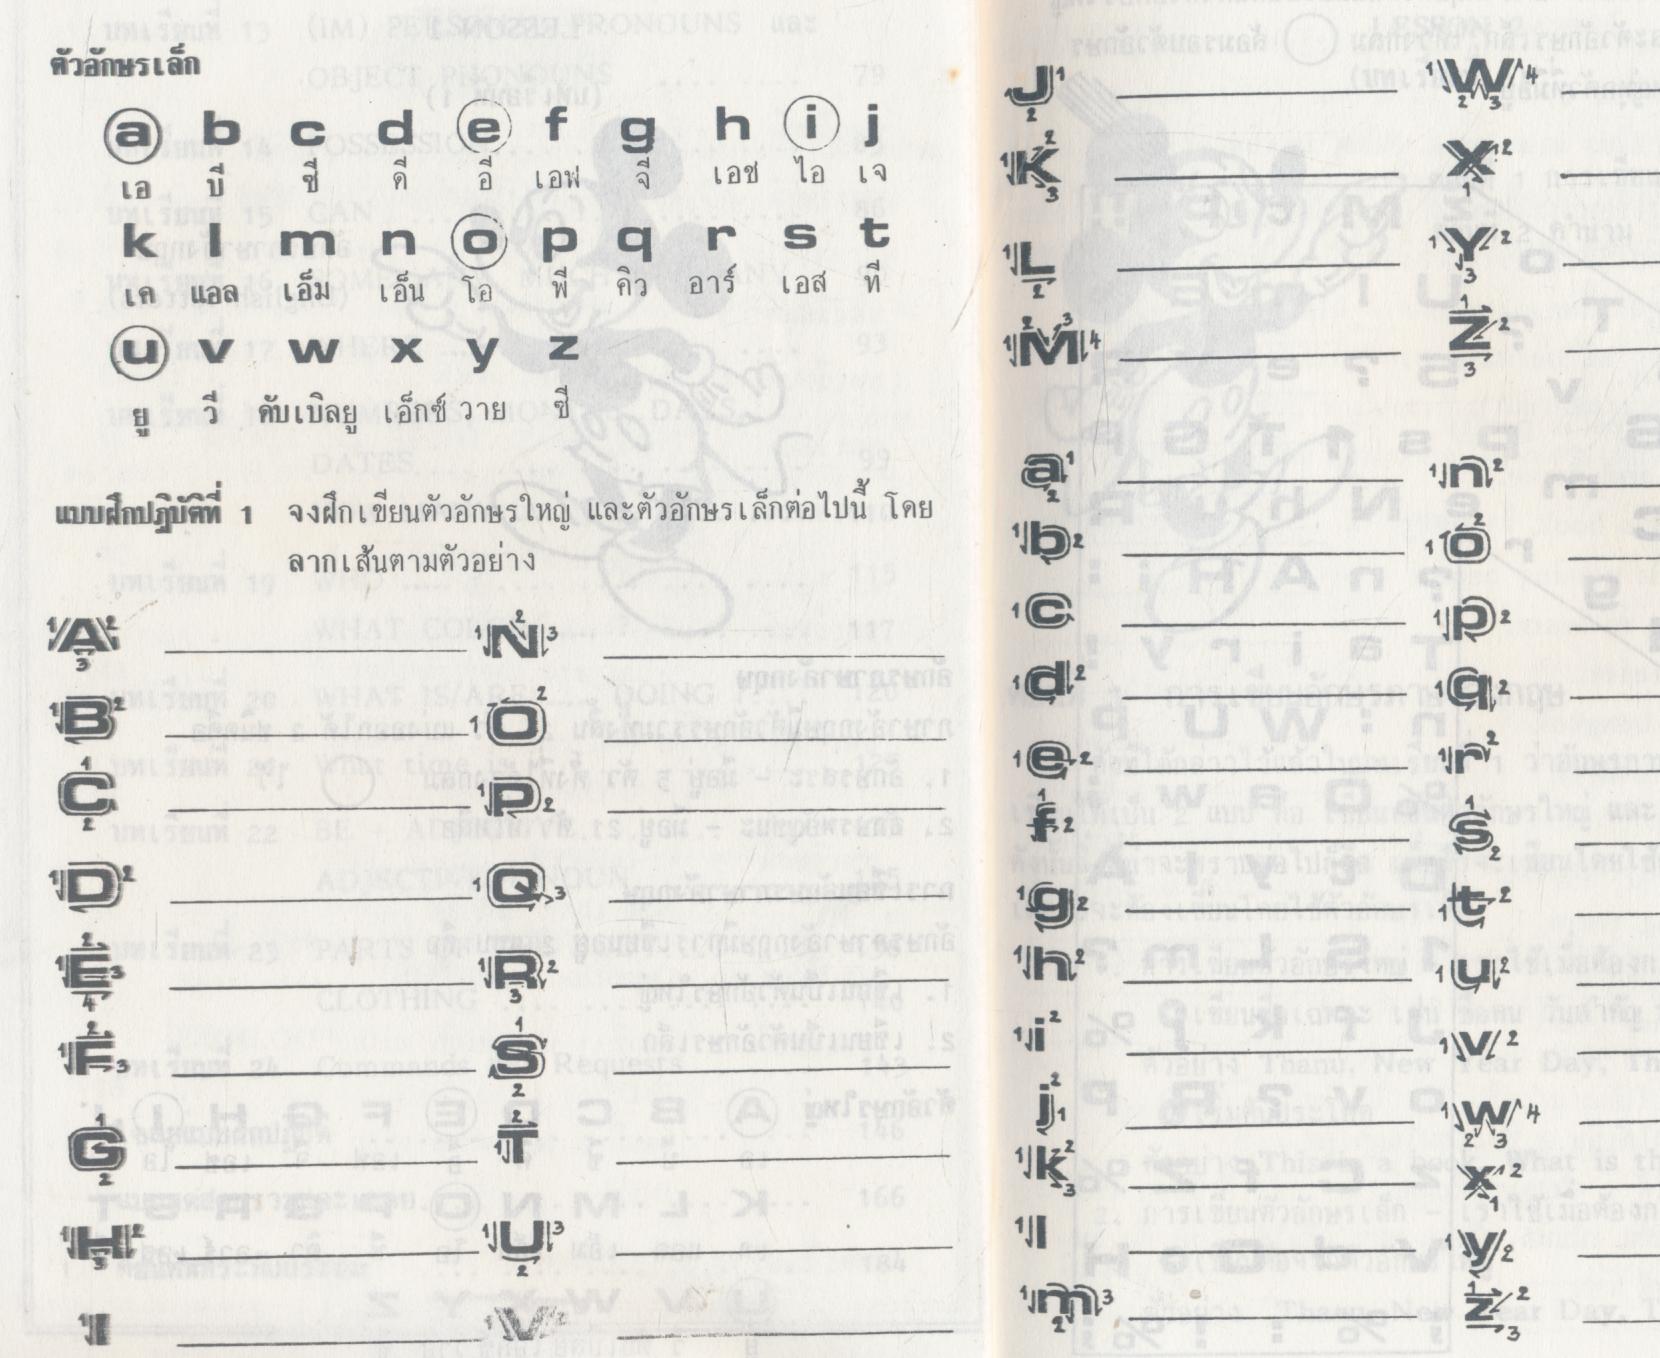 ตัวอักษรเล็ก
a b c d e f g h i j
เอ บี ซี ดี อี เอฟ จี เอช ไอ เจ
k l m n o p q r s t
เค แอล เอ็ม เอ็น โอ พี คิว อาร์ เอส ที
u v w x y z
ยู วี ดับเบิลยู เอ็กซ์ วาย ซี
แบบฝึกปฏิบัติที่ 1 จงฝึกเขียนตัวอักษรใหญ่ และตัวอักษรเล็กต่อไปนี้ โดย
ลากเส้นตามตัวอย่าง
A N
B O
C P
D Q
E R
F S
G T
H U
I V
J W
K X
L Y
M Z
a n
b o
c p
d q
e r
f s
g t
h u
i v
j w
k x
l y
m z